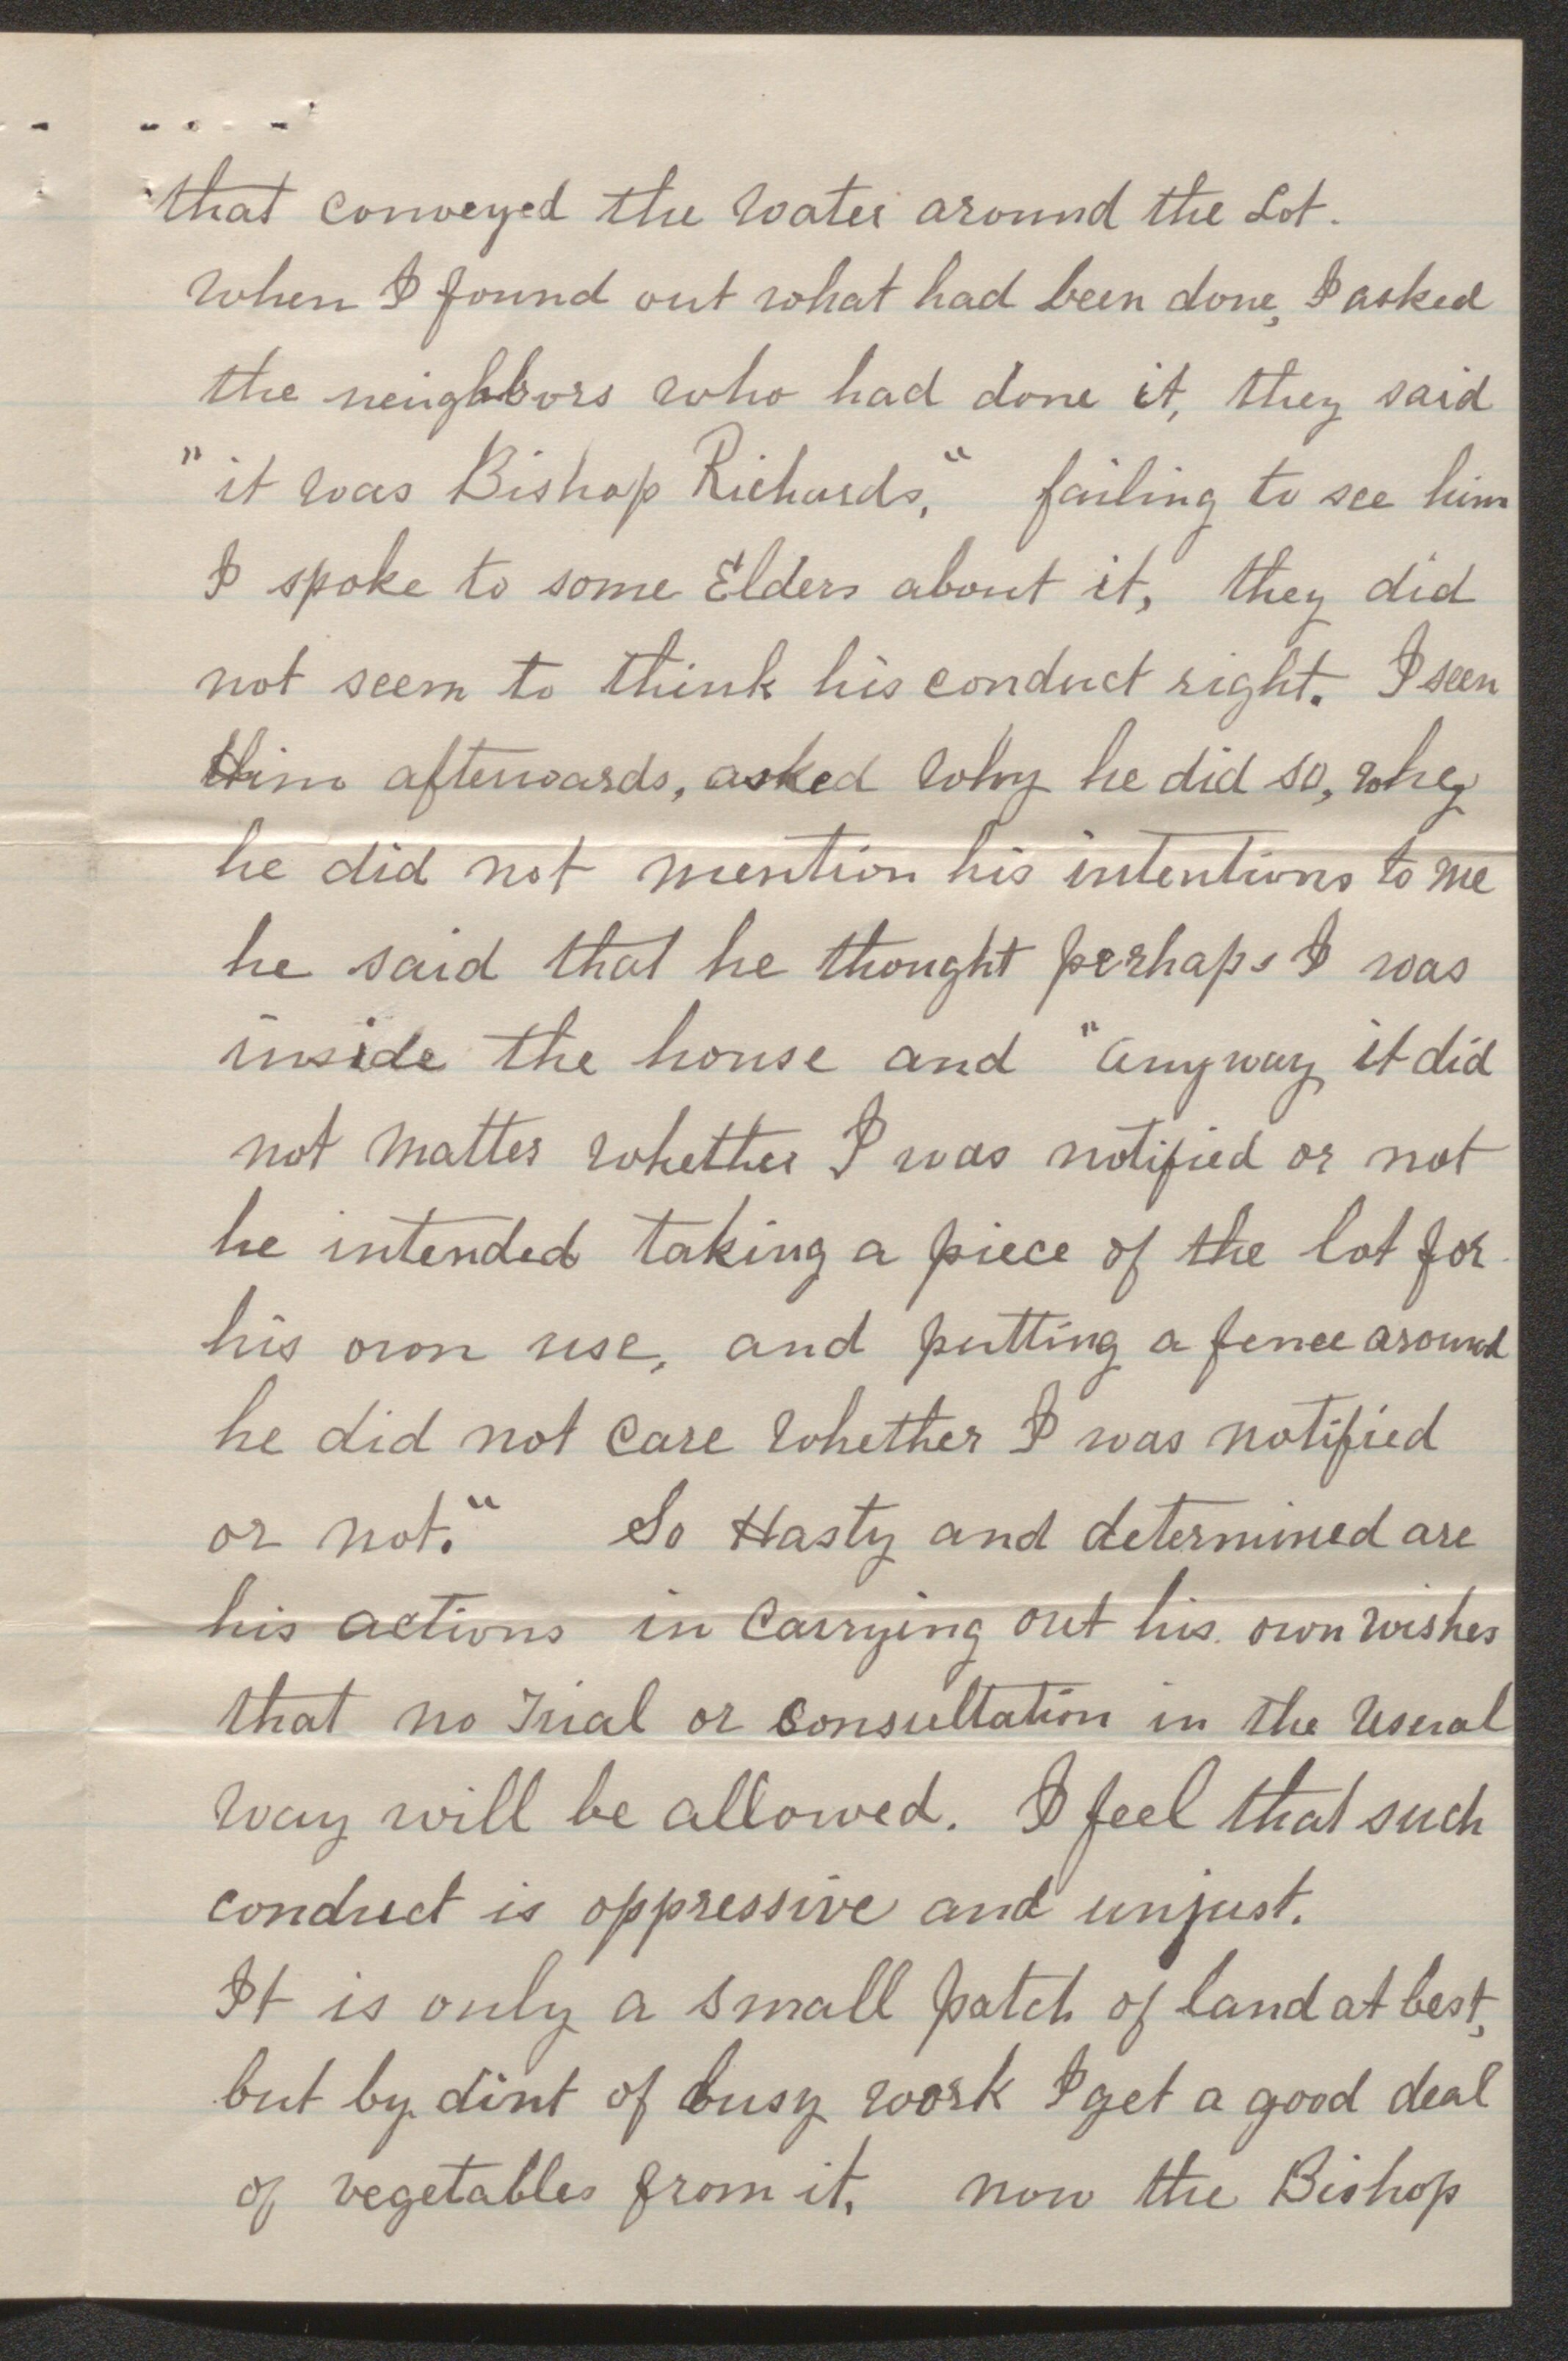 that conveyed the water around the Lot.
When I found out what had been done, I asked
the neighbors who had done it, they said
"it was Bishop Richards," failing to see him
I spoke to some Elders about it, they did
not seem to think his conduct right. I seen
Him afterwards, asked why he did so, why
he did not mention his intentions to me
he said that he thought perhaps I was
inside the house and "anyway it did
not matter whether I was notified or not
he intended taking a piece of the lot for
his own use, and putting a fence around
he did not care whether I was notified
or not." So Hasty and determined are
his actions in Carrying out his own wishes
that no Trial or consultation in the usual
way will be allowed. I feel that such
conduct is oppressive and unjust.
It is only a small patch of land at best,
but by dint of busy work I get a good deal
of vegetables from it, now the Bishop